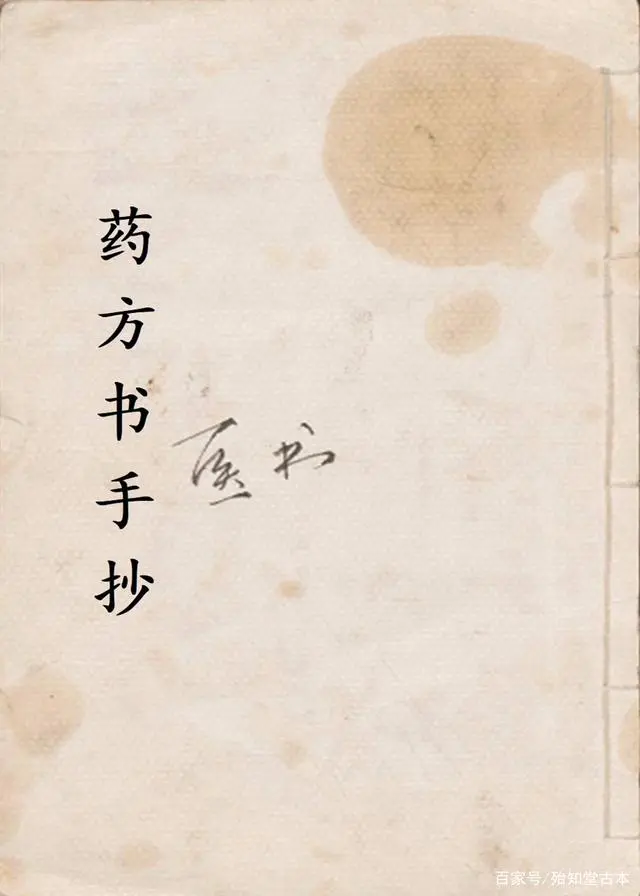 药方书手抄
医书
百家号/殆知堂古本